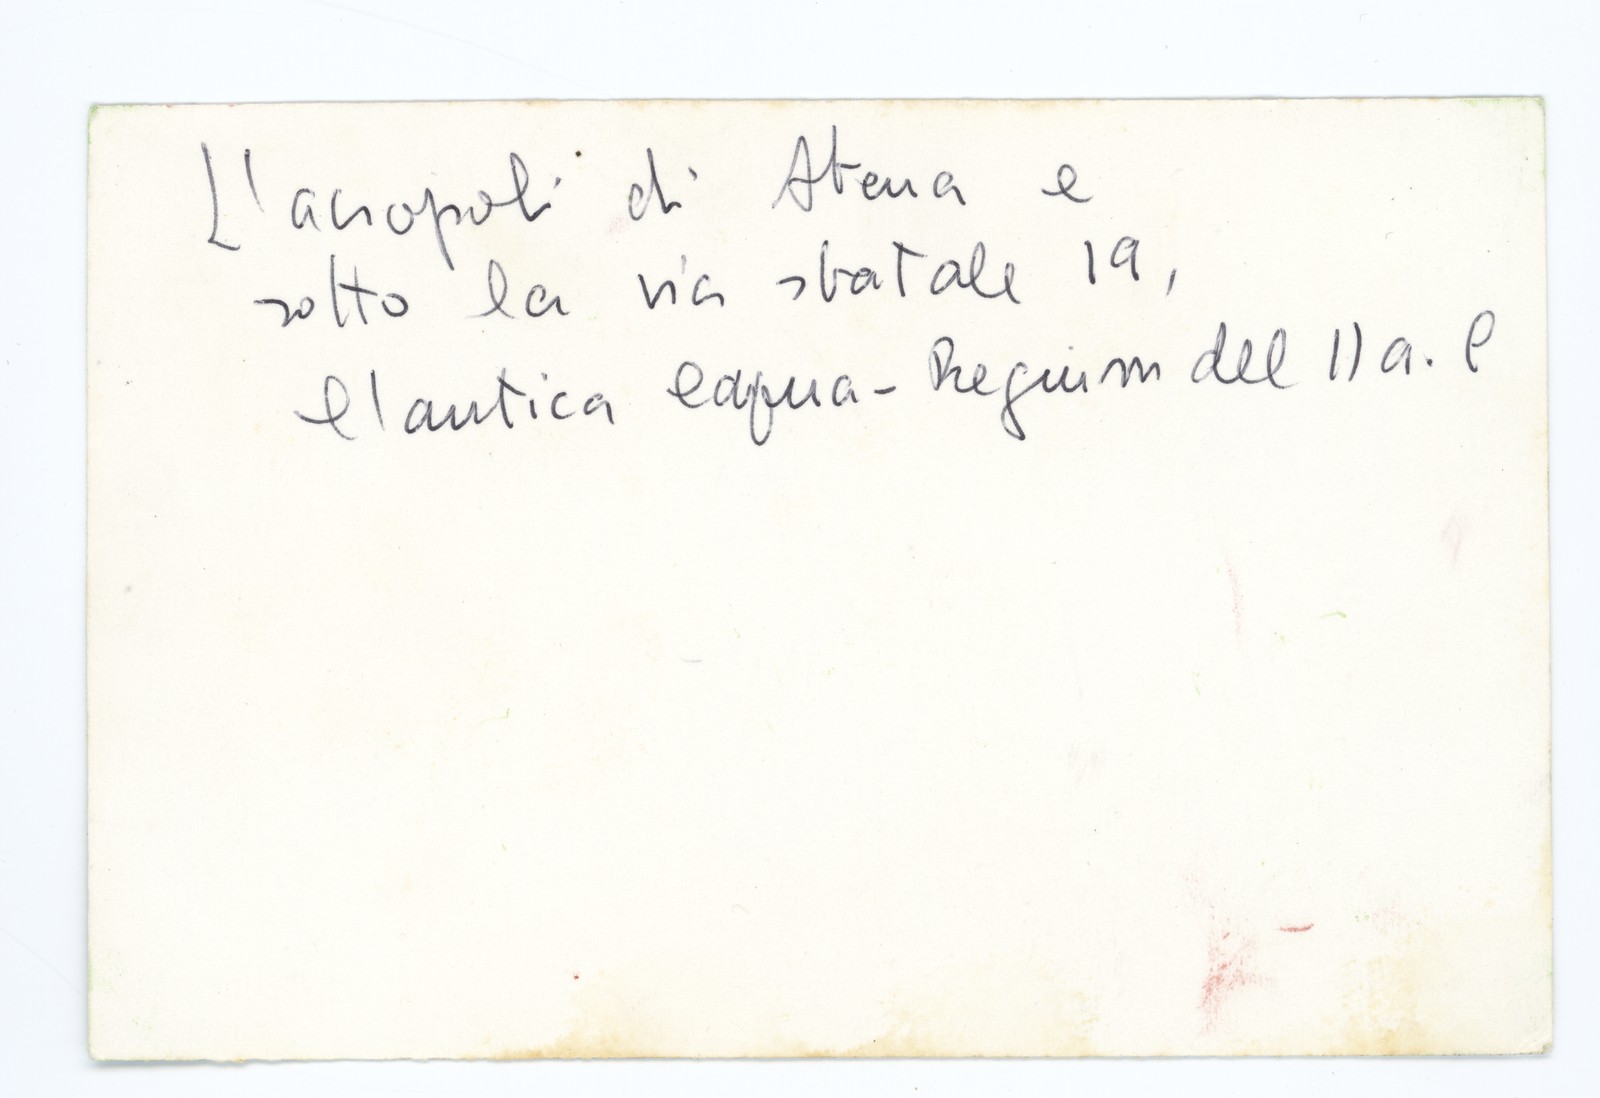 L'acropoli di Atena e
sotto la via statale 19,
e l'antica Capua-Regium del II a. C